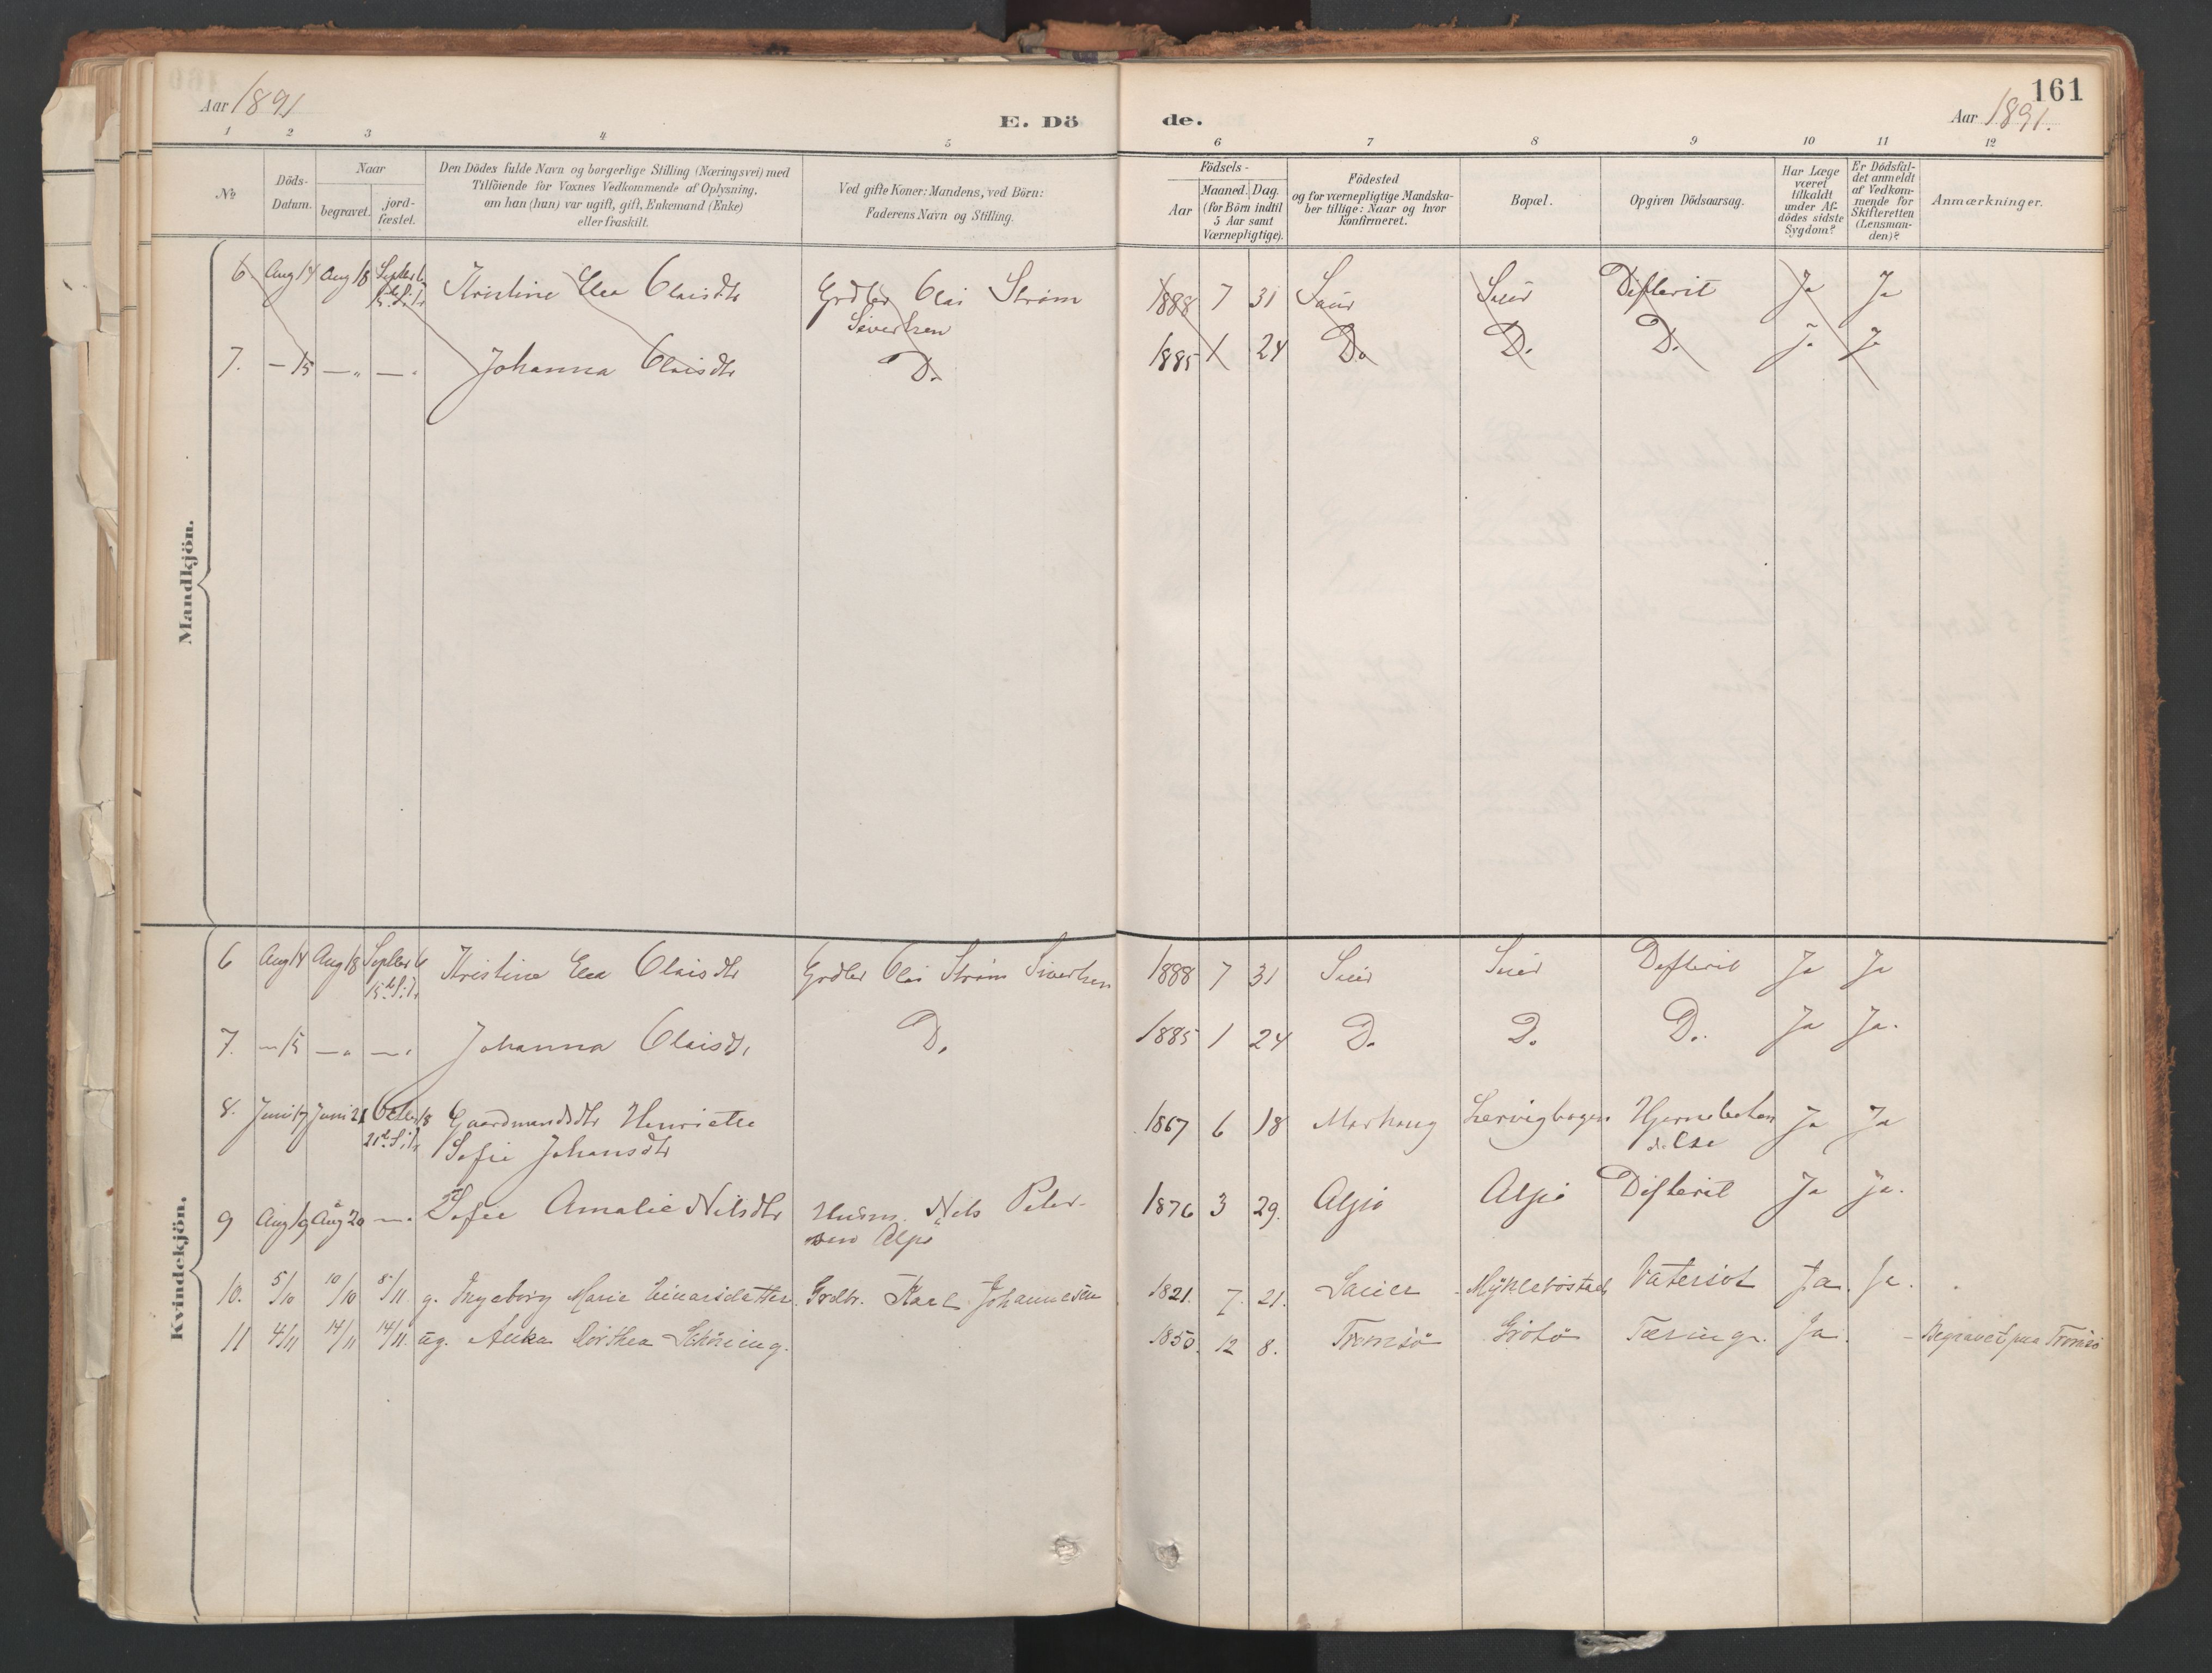 161
Aar 1891
E. Dö
de.
Aar 1891.
1 2 3 4 5 6 7 8 9 10 11 12
No.
Döds-
Datum.
Naar
begravet.
jord-
fæstet.
Den Dödes fulde Navn og borgerlige Stilling (Næringsvei) med
Tilföiende for Voxnes Vedkommende af Oplysning,
om han (hun) var ugift, gift, Enkemand (Enke)
eller fraskilt.
Ved gifte Koner: Mandens, ved Börn:
Faderens Navn og Stilling.
Födsels-
Aar
Maaned. Dag.
(for Börn indtil
5 Aar samt
Værnepligtige).
Födested
og for værnepligtige Mandska-
ber tillige: Naar og hvor
konfirmeret.
Bopæl.
Opgiven Dödsaarsag.
Har Læge
været
tilkaldt
under Af-
dödes sidste
Sygdom?
Er Dödsfal-
det anmeldt
af Vedkom-
mende for
Skifteretten
(Lensman-
den)?
Anmærkninger.
Mandkjön.
6 Aug 14 Aug 18 Septbr 6 Kristine Elea Olaisdtr Grdbr Olai Strøm 1888 7 31 Difterit Ja Ja
15de S. i Tr. Sivertsen
7. — 15 —„ —„ Johanna Olaisdtr Do 1885 1 24 Do Do Do Ja Ja
Kvindekjön.
6 Aug 14 Aug 18 Septbr 6 Kristine Elea Olaisdtr Grdbr Olai Strøm Sivertsen 1888 7 31 Difterit Ja Ja
15de S. i Tr.
7. — 15 —„ —„ Johanna Olaisdtr Do 1885 1 24 Do Do Do Ja Ja.
8. Juni 17 Juni 21 Octbr 18 Gaardmandsdtr Henriette 1867 6 18 Morhaug Hjernebeten Ja Ja
21de S. i Tr. Sofie Johansdtr delse
9 Aug 19 Aug 20 —„ Sofie Amalie Nilsdtr Husm. Nils Peter- 1876 3 29. Alsjø Alsjø Difterit Ja Ja.
sen Alsjø
10. 5/10 10/10 8/11 g. Ingeborg Marie Einarsdatter. Grdbr. Karl Johannesen 1821. 7. 21. Myklebostad Vatersot Ja. Ja.
11 4/11 14/11 14/11. ug. Anka Dorthea Schöning. 1850. 12 8. Tromsö Grötö Tæring. Ja. — Begravet paa Tromsö